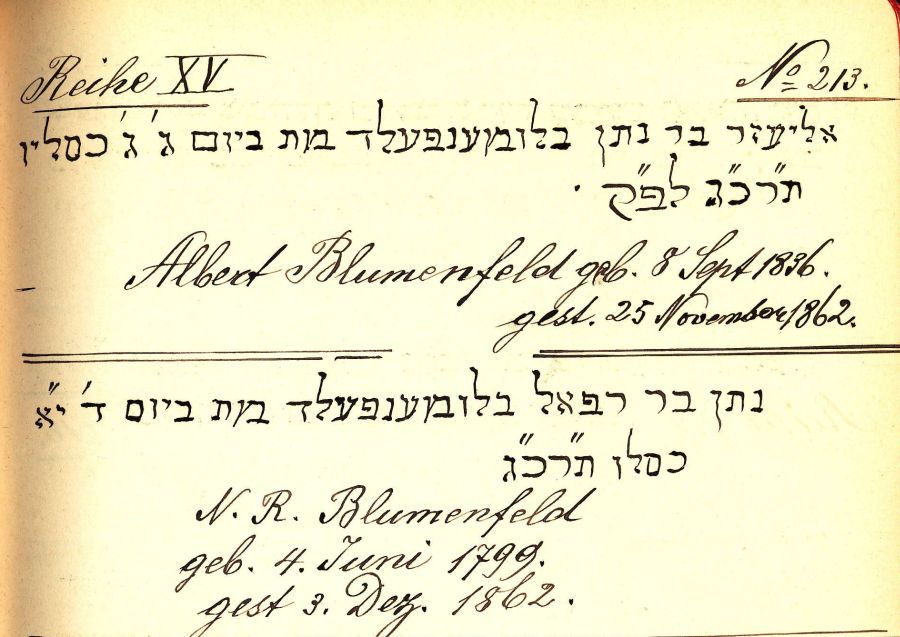 Reihe XV
No 213.
אליעזר בר נתן בלומענפעלד מת ביום ג' ג' כסליו
ת"רכ"ג לפ"ק .
Albert Blumenfeld geb. 8 Sept 1836.
gest. 25 November 1862.
נתן בר רפאל בלומענפעלד מת ביום ד' י"א
כסלו ת"רכ"ג
N. R. Blumenfeld
geb. 4. Juni 1799.
gest 3. Dez. 1862.